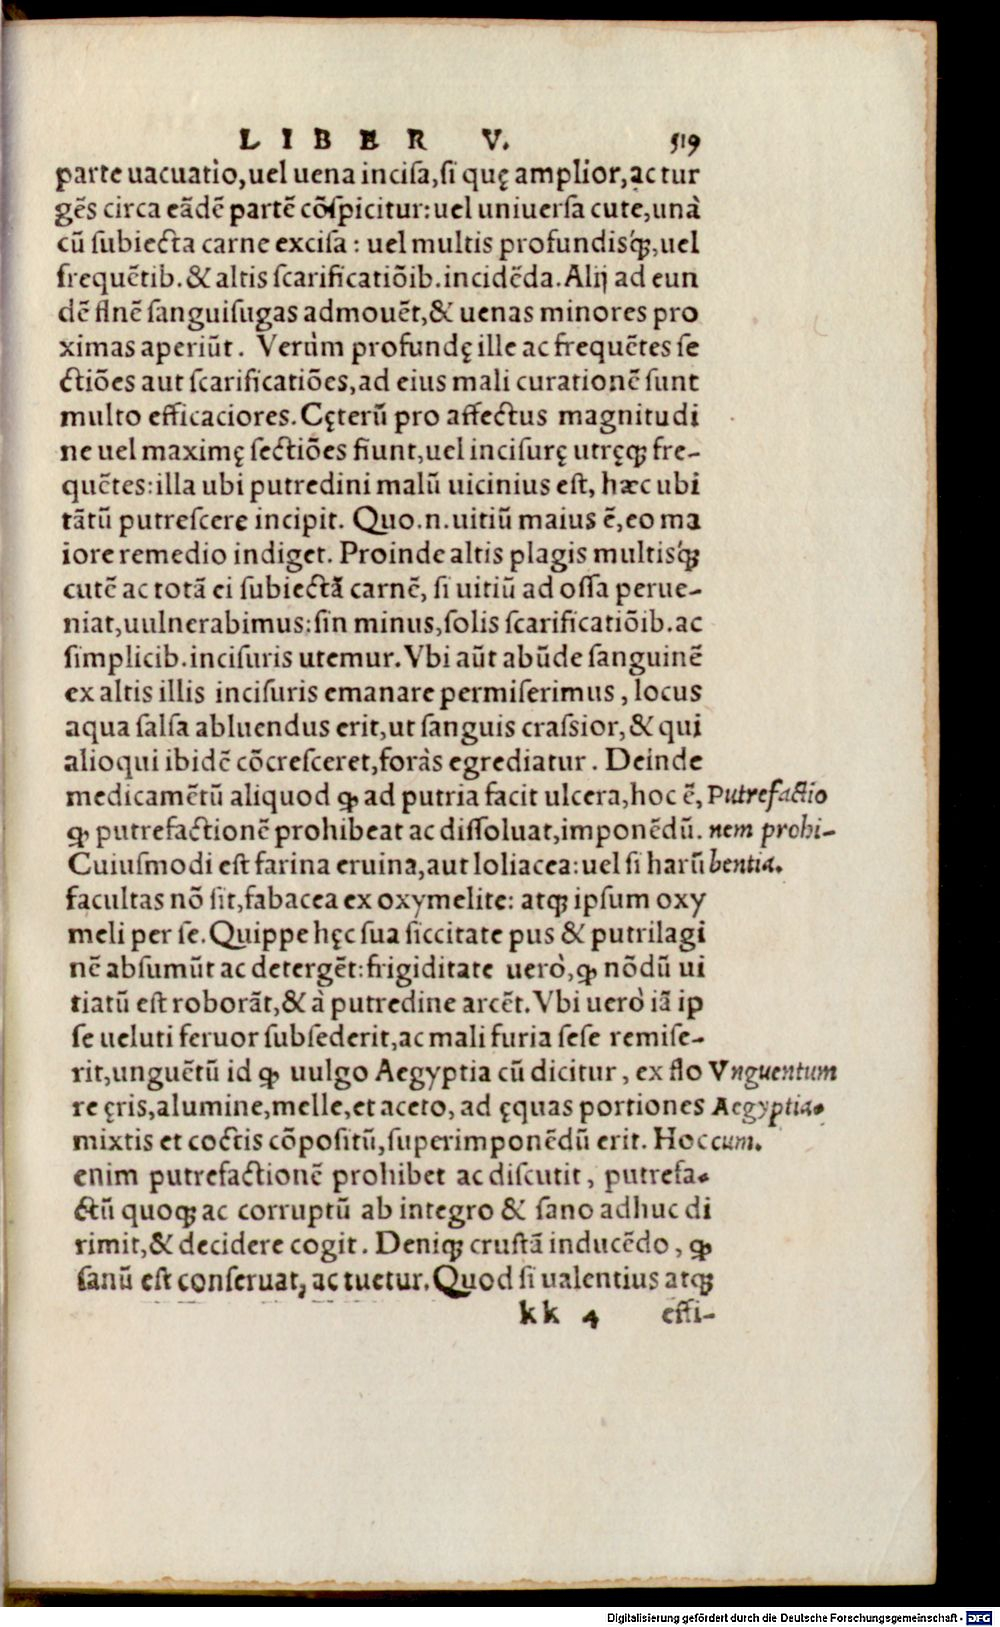 LIBER V. 519
parte uacuatio, uel uena incisa, si quę amplior, ac tur
gẽs circa eãdẽ partẽ cõspicitur: uel uniuersa cute, unà
cũ subiecta carne excisa: uel multis profundisq́ꝫ, uel
frequẽtib. & altis scarificatiõib. incidẽda. Alij ad eun
dẽ finẽ sanguisugas admouẽt, & uenas minores pro
ximas aperiũt. Verùm profundę ille ac frequẽtes se
ctiões aut scarificatiões, ad eius mali curationẽ sunt
multo efficaciores. Cęterũ pro affectus magnitudi
ne uel maximę sectiões fiunt, uel incisurę utręqꝫ fre-
quẽtes: illa ubi putredini malũ uicinius est, hæc ubi
tãtũ putrescere incipit. Quo .n. uitiũ maius ẽ, eo ma
iore remedio indiget. Proinde altis plagis multisq́ꝫ
cutẽ ac totã ei subiectã carnẽ, si uitiũ ad ossa perue-
niat, uulnerabimus: sin minus, solis scarificatiõib. ac
simplicib. incisuris utemur. Vbi aũt abũde sanguinẽ
ex altis illis incisuris emanare permiserimus, locus
aqua salsa abluendus erit, ut sanguis crassior, & qui
alioqui ibidẽ cõcresceret, foràs egrediatur. Deinde
medicamẽtũ aliquod ꝙ ad putria facit ulcera, hoc ẽ, Putrefactio
ꝙ putrefactionẽ prohibeat ac dissoluat, imponẽdũ. nem prohi-
Cuiusmodi est farina eruina, aut loliacea: uel si harũ bentia.
facultas nõ sit, fabacea ex oxymelite: atqꝫ ipsum oxy
meli per se. Quippe hęc sua siccitate pus & putrilagi
nẽ absumũt ac detergẽt: frigiditate uerò, ꝙ nõdũ ui
tiatũ est roborãt, & à putredine arcẽt. Vbi uerò iã ip
se ueluti feruor subsederit, ac mali furia sese remise-
rit, unguẽtũ id ꝙ uulgo Aegyptia cũ dicitur, ex flo Vnguentum
re ęris, alumine, melle, et aceto, ad ęquas portiones Aegyptia-
mixtis et coctis cõpositũ, superimponẽdũ erit. Hoc cum.
enim putrefactionẽ prohibet ac discutit, putrefa-
ctũ quoqꝫ ac corruptũ ab integro & sano adhuc di
rimit, & decidere cogit. Deniqꝫ crustã inducẽdo, ꝙ
sanũ est conseruat, ac tuetur. Quod si ualentius atqꝫ
kk 4 effi-
Digitalisierung gefördert durch die Deutsche Forschungsgemeinschaft - DFG